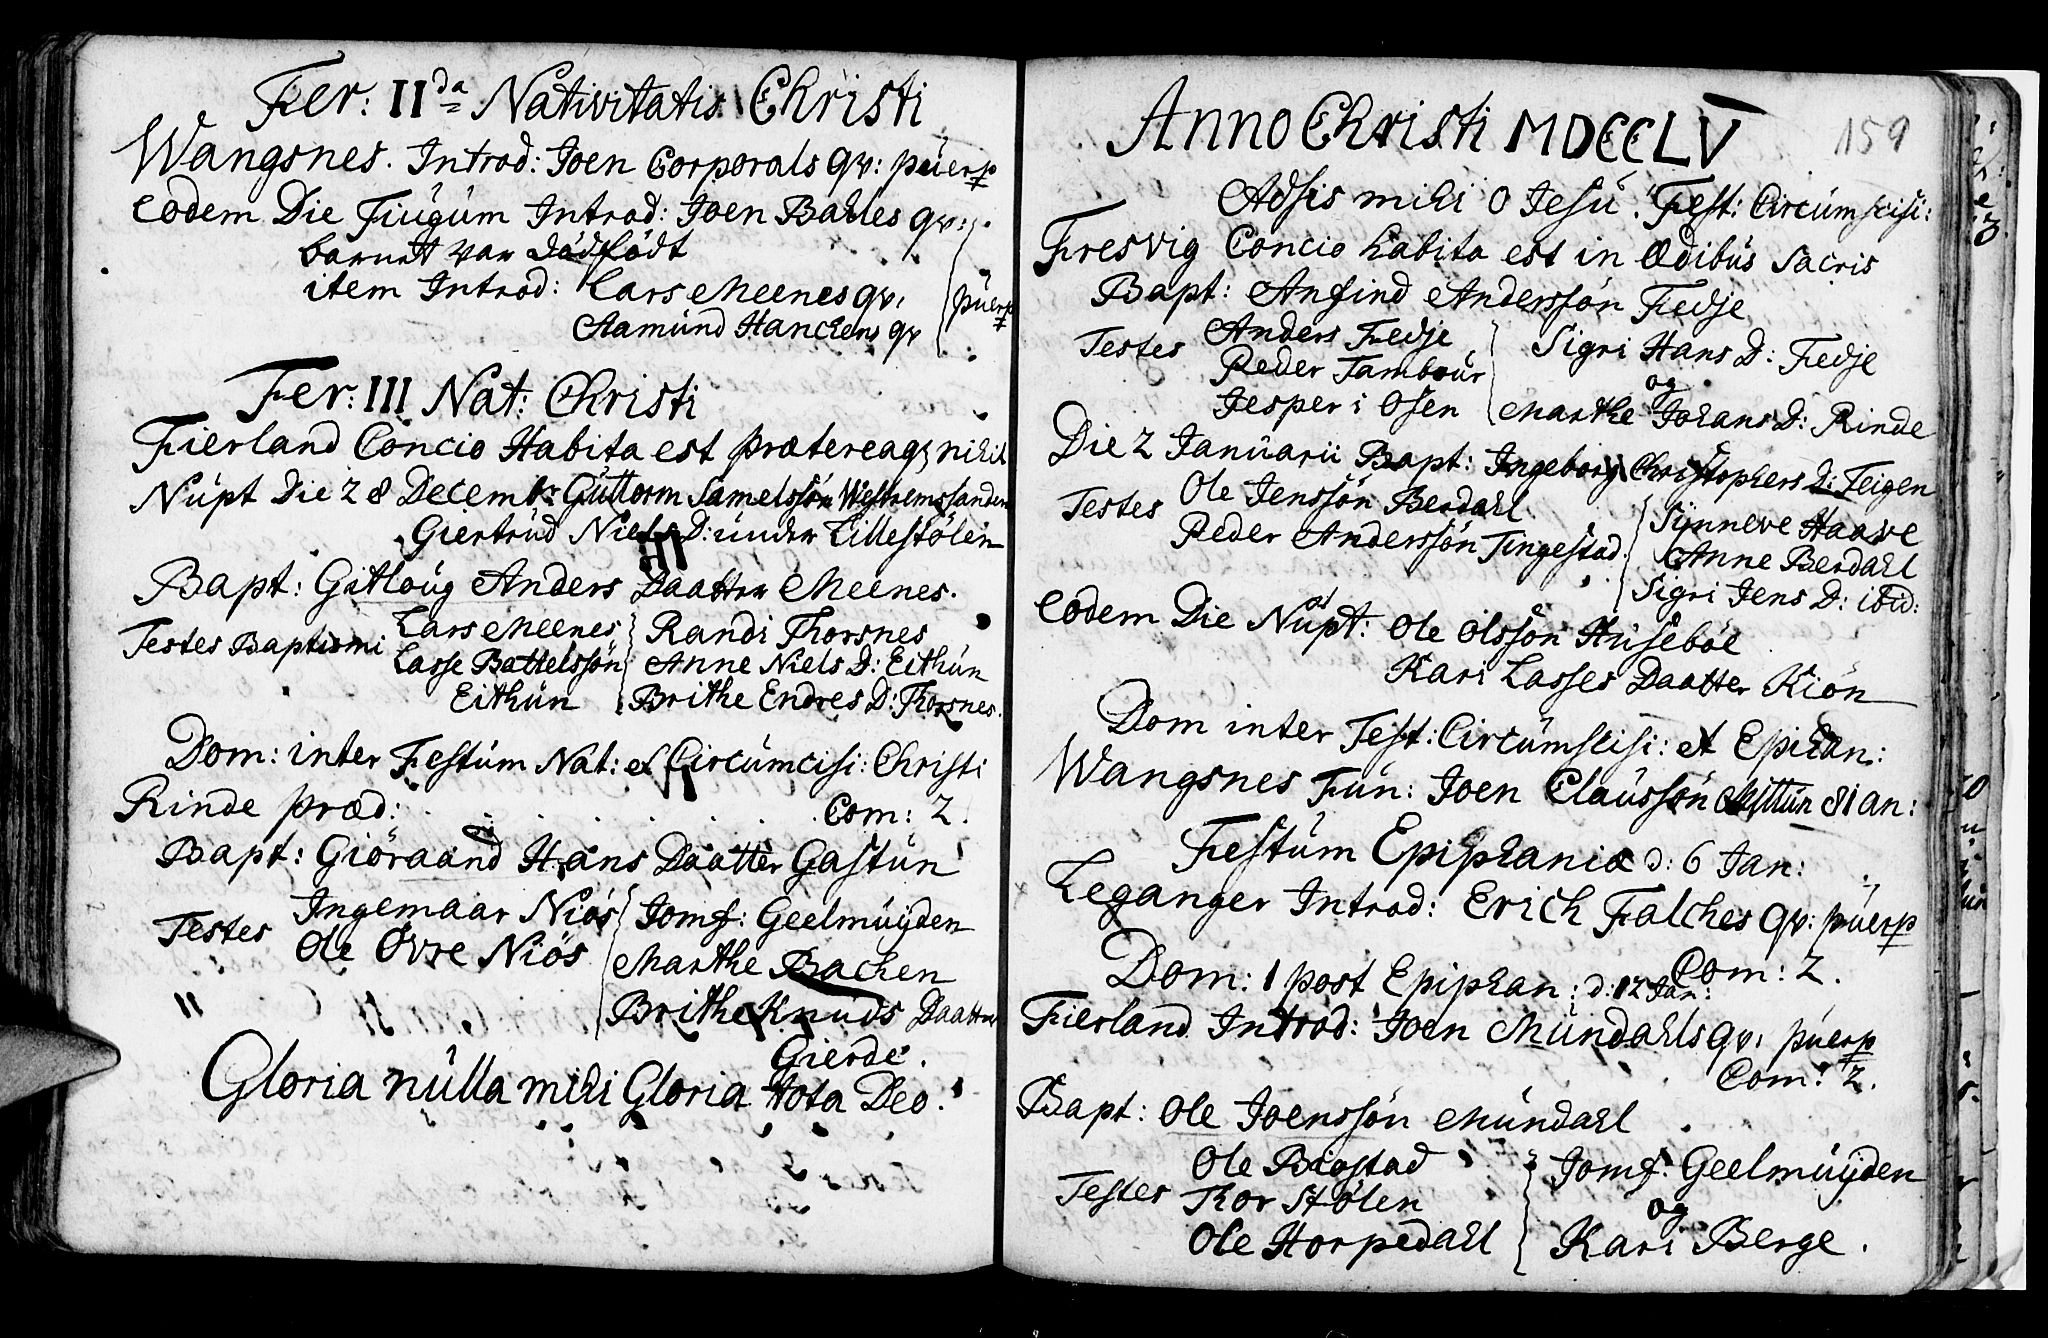 Fer: II da Nativitatis Christi
Wangsnes. Introd: Joen Corporals qv: puerp
Eodem Die Fiugum Introd: Joen Bahles qv:
barnet var dødfødt
item Introd: Lars Meenes qv: puerp
Aamund Hanckens qv
Fer: III Nat: Christi
Fierland Concio Habita est prætereaq; nihil
Nupt Die 28 Decembr: Guttorm Samelssön Westremssanden
Giertrud Niels D: under Lillestölen
Bapt: Gitloug Anders Daatter Meenes.
Testes Baptismi Lars Meenes Randi Thorsnes
Lasse Battelssön Anne Niels D: Eithun
Eithun Brithe Endres D: Thorsnes.
Dom: inter Festum Nat: et Circumcisi: Christi
Rinde præd: Com: 2.
Bapt: Giöraand Hans Daatter Gastun
Testes Ingemaar Niös Jomf: Geelmuyden
Ole Övre Niös Marthe Bachen
Brithe Knuds Daatter
Gierde.
Gloria nulla mihi Gloria tota Deo.
159
Anno Christi MDCCLV
Adsis mihi O Jesu. Fest: Circumscisi:
Fresvig Concio habita est in Ædibus sacris
Bapt: Anfind Anderssön Fedje
Testes Anders Fedje Sigri Hans D: Fedje
Peder Tambour og
Jesper i Osen Marthe Johans D: Rinde
Die 2 Januarii Bapt: Ingeborg Christophers D: Feigen
Testes Ole Jenssön Berdahl. Synneve Haave
Peder Anderssön Tingestad. Anne Berdahl
Sigri Jens D: ibid:
Eodem Die Nupt: Ole Olssön Huseböe
Kari Lasses Daatter Kiön
Dom inter Fest: Circumscisi: et Epiphan:
Wangsnes Fun: Joen Claussön Mittun 81 an:
Festum Epiphaniæ d: 6 Jan:
Leganger Introd: Erich Falches qv: puerp
Com: 2.
Dom: 1 post Epiphan: d: 12 Jan:
Fierland Introd: Joen Mundahls qv: puerp
Com: 2.
Bapt: Ole Joenssön Mundahl
Testes Ole Bigstad Jomf: Geelmuyden
Thor Stölen og
Ole Horpedahl Kari Berge.